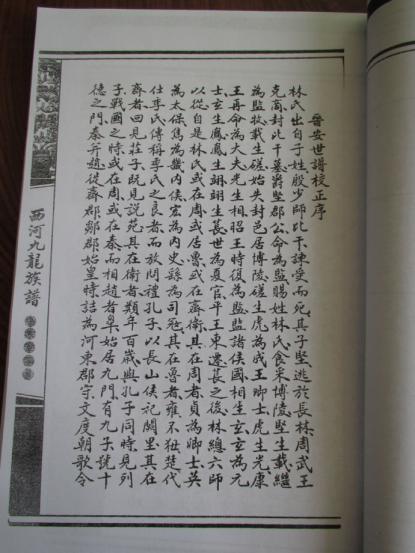 晉安世譜校正序
林氏出自子姓殷少師比干諫受而死其子堅逃於長林周武王
克商封比干墓爵堅郡公命為監賜姓林氏食采博陵堅生載繼
為監牧載生磋始失封邑居博陵磋生虎為成王卿士虎生光康
王再命為大夫光生相昭王時復為監監諸侯國相生玄玄為元
士玄生鳳鳳生翊翊生萇世為夏官平王東遷萇之後林總六師
以從自是林氏或在周或居魯或在齊衛其在周者貞為卿士英
為太保雋為畿內侯宏為內史繇為司冦其在魯者雍不狃楚代
仕季氏傳稱季氏之良者而放問禮孔子以長山侯祀闕里其在
齊者回見莊子既見說苑其在衛者類年百歲與孔子同時見列
子戰國之時或在周或在秦而相趙者皐始居九門有九子號十
德之門秦并趙從齊郡鄒郡始皇時詰為河東郡守文度朝歌令
西河九龍族譜